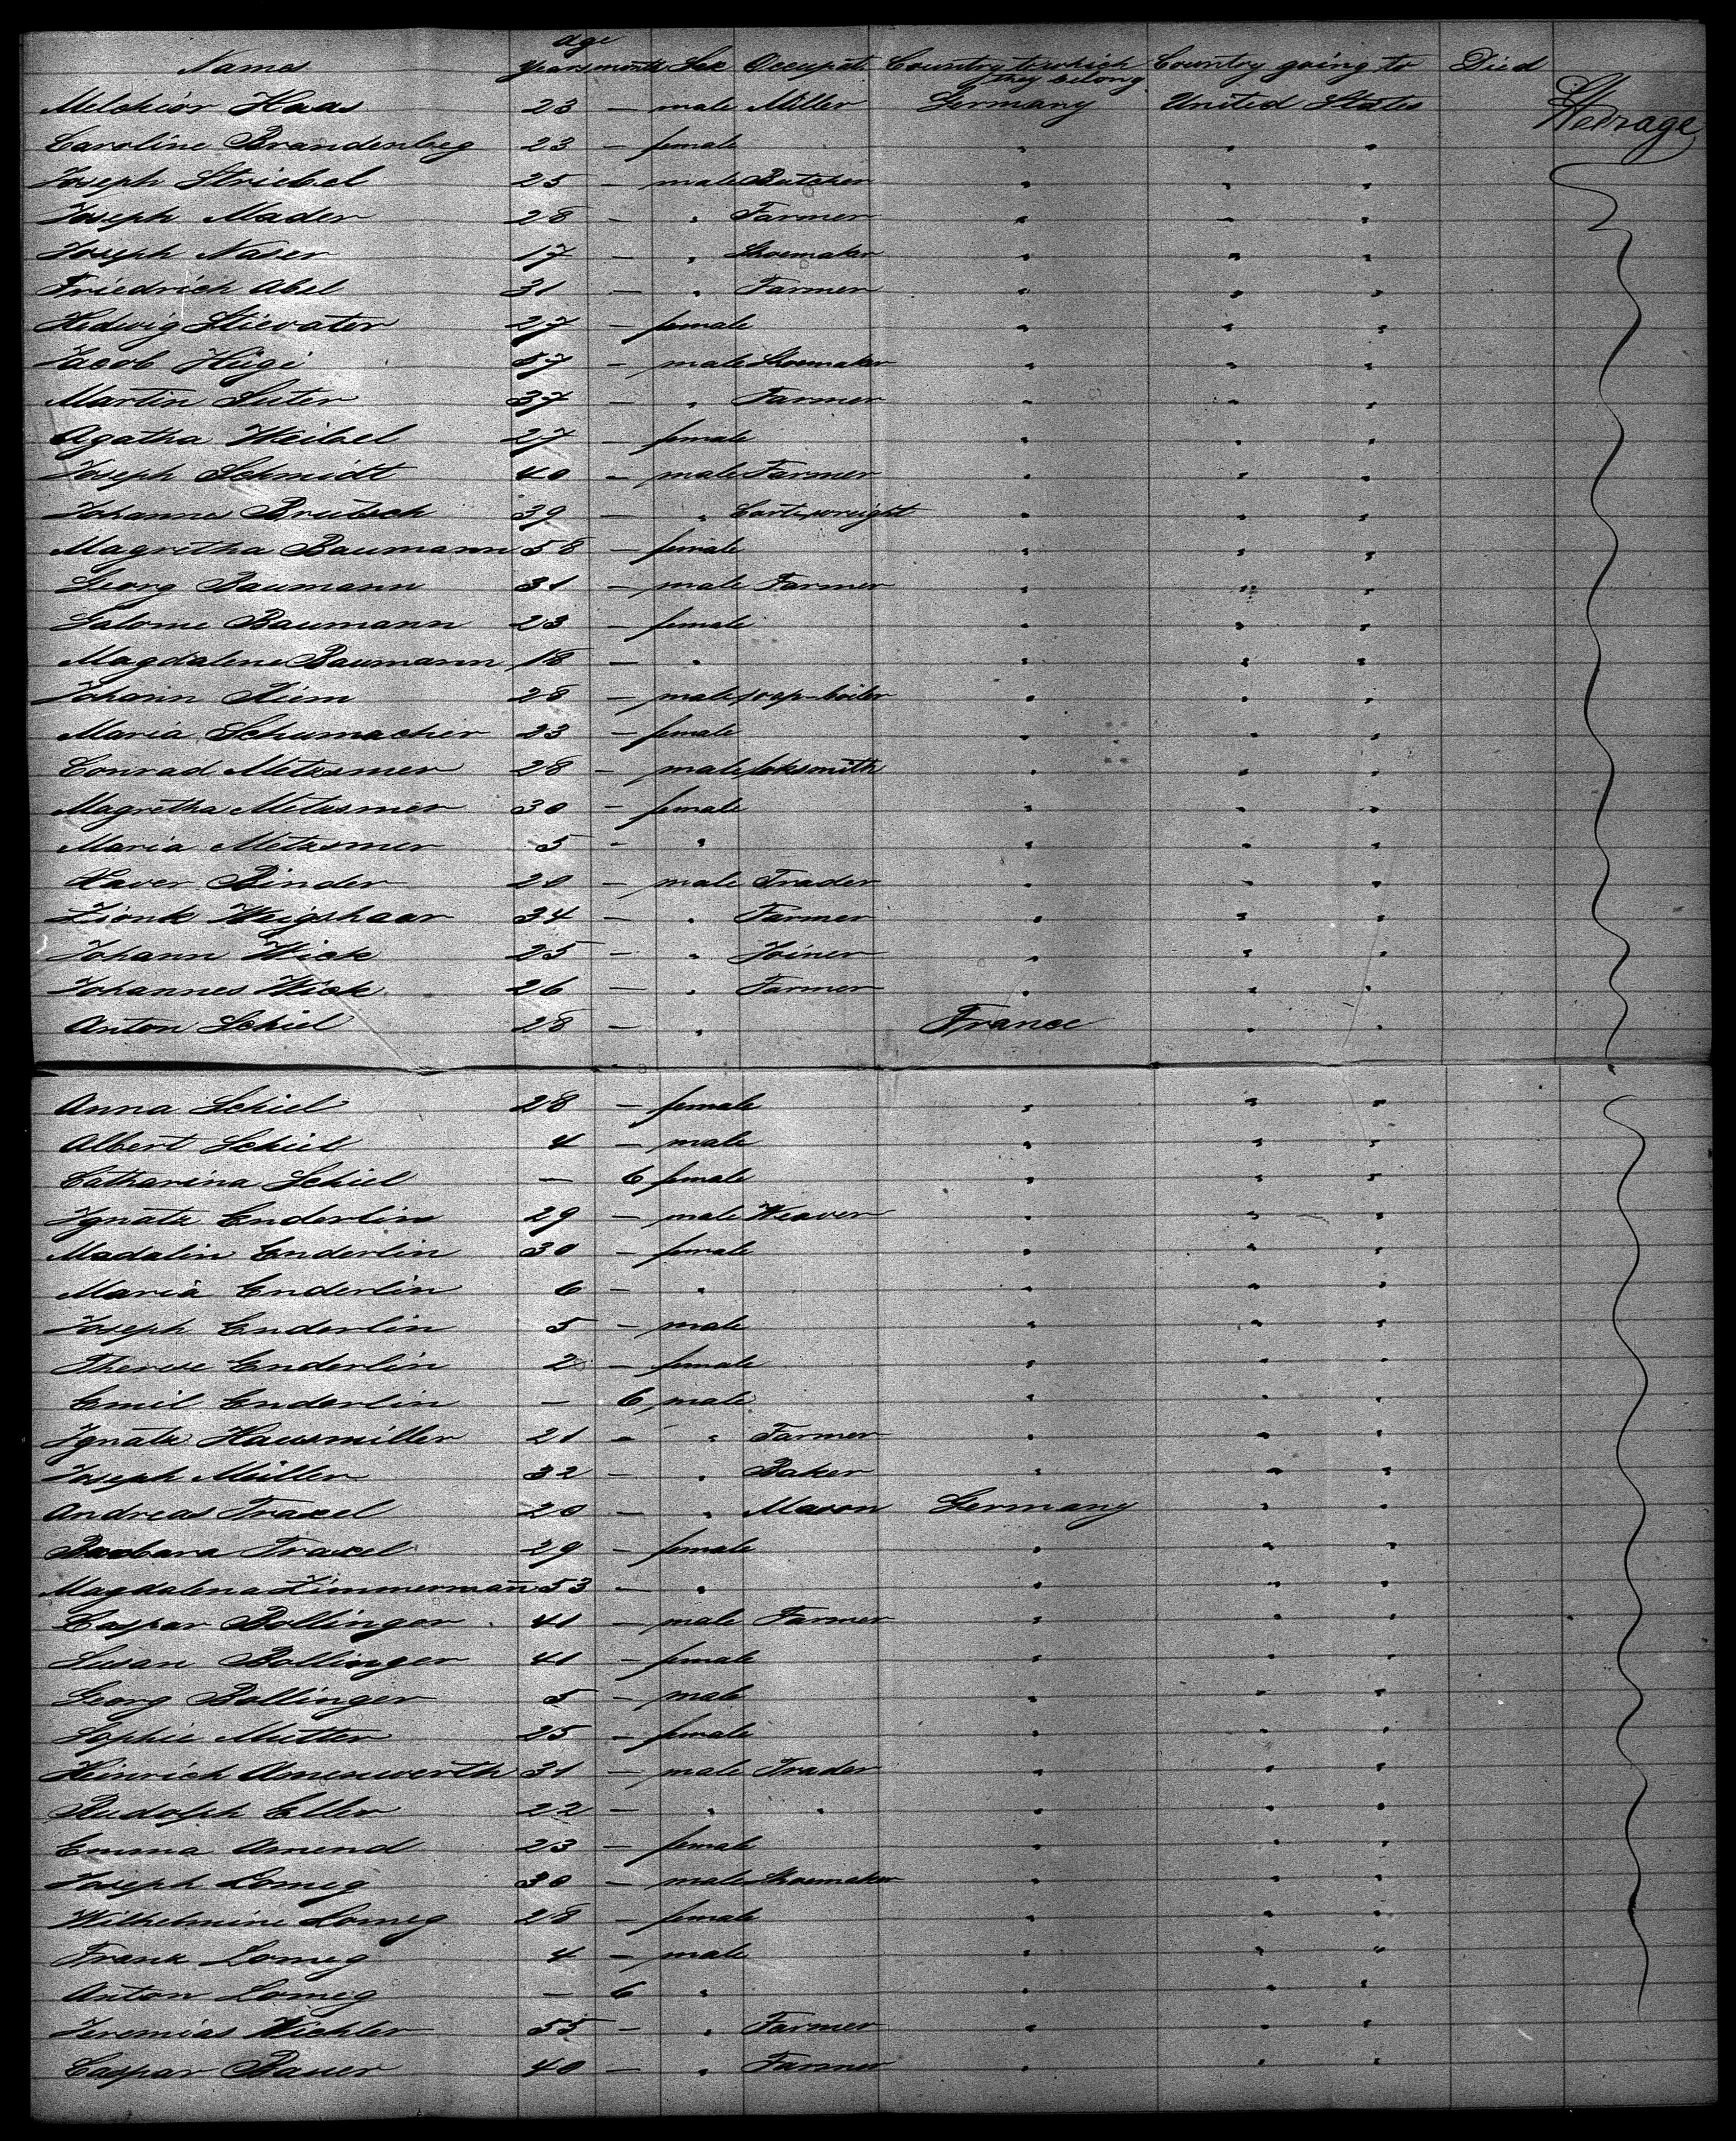 Names age years month Sex Occupat. Country to which they belong Country going to Died
Melchior Haas 23 — male Miller Germany United States Steerage
Caroline Brandenbeg 23 — female " " "
Joseph Striebel 25 — male Butcher " " "
Joseph Mader 28 — " Farmer " " "
Joseph Naser 17 — " Shoemaker " " "
Friedrich Abel 31 — " Farmer " " "
Hedwig Stievater 27 — female " " "
Jacob Hügi 57 — male Shoemaker " " "
Martin Suter 37 — " Farmer " " "
Agatha Weibel 27 — female " " "
Joseph Schmidt 40 — male Farmer " " "
Johannes Brutsch 39 — " " " "
Magretha Baumann 58 — female " " "
Georg Baumann 31 — male Farmer " " "
Salome Baumann 23 — female " " "
Magdalene Baumann 18 — " " " "
Johann Reim 28 — male soap-boiler " " "
Maria Schumacher 23 — female " " "
Conrad Metzsmer 28 — male loksmith " " "
Magretha Metzsmer 30 — female " " "
Maria Metzsmer 5 — " " " "
Xaver Binder 20 — male Trader " " "
Weigshaar 34 — " Farmer " " "
Johann Wick 25 — " Joiner " " "
Johannes Wick 26 — " Farmer " " "
Anton Schiel 28 — " France " "
Anna Schiel 28 — female " " "
Albert Schiel 4 — male " " "
Catharina Schiel — 6 female " " "
Ignatz Enderlin 29 — male Weaver " " "
Madalin Enderlin 30 — female " " "
Maria Enderlin 6 — " " " "
Joseph Enderlin 5 — male " " "
Therese Enderlin 2 — female " " "
Emil Enderlin — 6 male " " "
Ignatz Hausmiller 21 — " Farmer " " "
Joseph Müller 32 — " Baker " " "
Andreas Traxel 20 — " Mason Germany " "
Barbara Traxel 29 — female " " "
Magdalena Zimmermann 53 — " " " "
Caspar Bollinger 41 — male Farmer " " "
Susan Bollinger 41 — female " " "
Georg Bollinger 5 — male " " "
Sophie Mutter 25 — female " " "
Heinrich 31 — male Trader " " "
Rudolph Eller 22 — " " " " "
Emma Amend 23 — female " " "
Joseph Lomeg 30 — male Shoemaker " " "
Wilhelmine Lomeg 28 — female " " "
Frank Lomeg 4 — male " " "
Anton Lomeg — 6 " " " "
Jeremias Wichler 55 — " Farmer " " "
Caspar Bauer 40 — " Farmer " " "